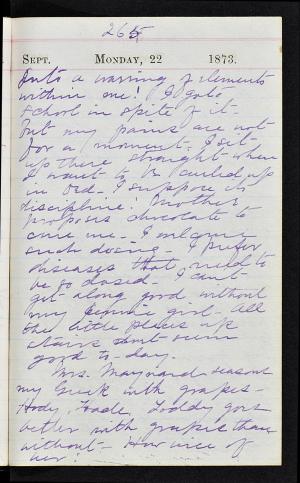 265
SEPT. MONDAY, 22 1873.
Into a warring of elements
within me! I go to
school in spite of it.
But my pains are not
for a moment. I sit
up there straight when
I want to be curled up
in bed. I suppose its
discipline! Mother
proposes chocolate to
cure me. I welcome
such dosing. I prefer
diseases that need to
be so dosed. I can't
get along good without
my Jennie girl. All
the little places up
stairs don't seem
good to-day.
Mrs. Maynard seasons
my Greek with grapes.
goes
better with grapes than
without. How nice of
her!